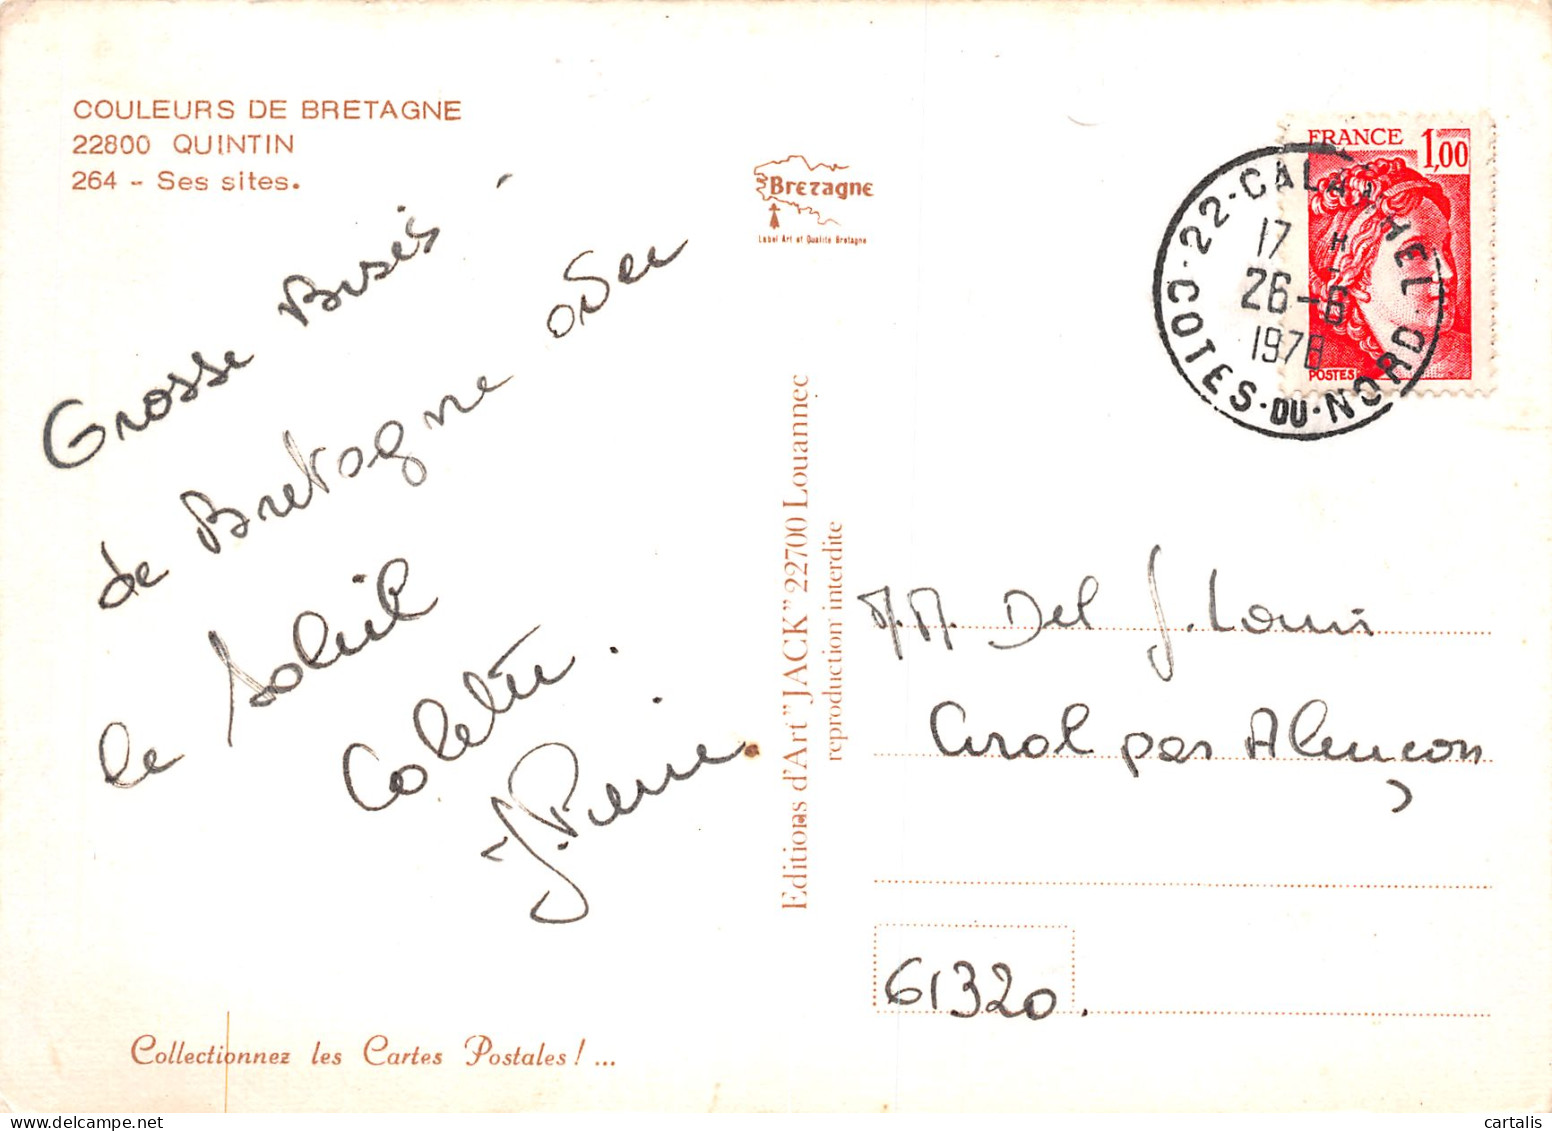 COULEURS DE BRETAGNE
22800 QUINTIN
264 - Ses sites.
Bretagne
Label Art et Qualité Bretagne
FRANCE 1,00
POSTES
22-CALANHEL
17 H
26-6
1978
COTES-DU-NORD
Grosse Bisés
de Bretagne
le Soleil
Colette.
J. Pierre
Editions d'Art "JACK" 22700 Louannec
reproduction interdite
M.M. Del J. Louis
Carol par Alençon
61320.
Collectionnez les Cartes Postales ! ...
cartalis